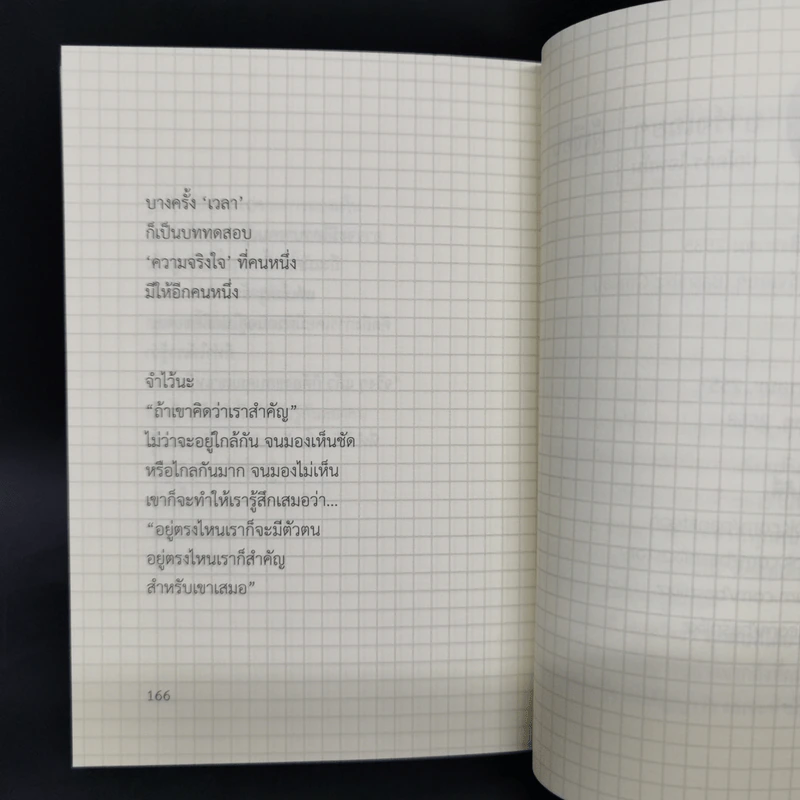 บางครั้ง ‘เวลา’
ก็เป็นบททดสอบ
‘ความจริงใจ’ ที่คนหนึ่ง
มีให้อีกคนหนึ่ง
จำไว้นะ
“ถ้าเขาคิดว่าเราสำคัญ”
ไม่ว่าจะอยู่ใกล้กัน จนมองเห็นชัด
หรือไกลกันมาก จนมองไม่เห็น
เขาก็จะทำให้เรารู้สึกเสมอว่า...
“อยู่ตรงไหนเราก็จะมีตัวตน
อยู่ตรงไหนเราก็สำคัญ
สำหรับเขาเสมอ”
166